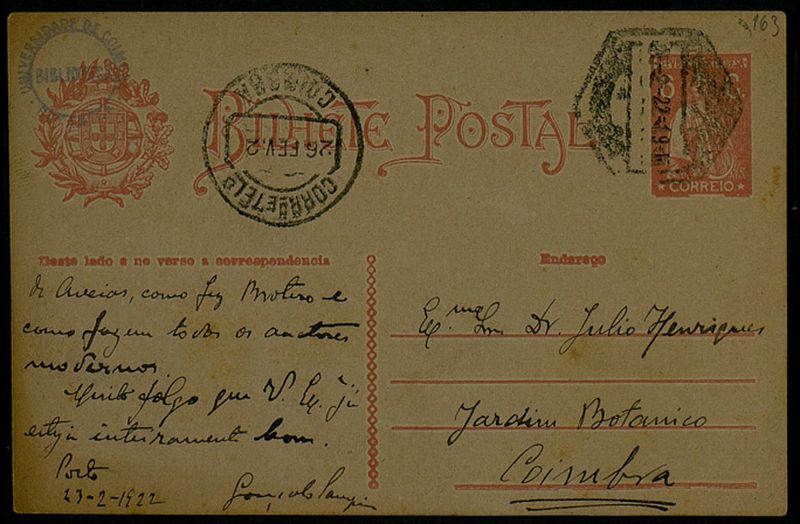 163
UNIVERSIDADE DE COIMBRA
BILHETE POSTAL
CORREIO
COIMBRA
26 FEV. 2
Deste lado e no verso a correspondencia
Endereço
de Aveiro, como fez Brotero e
como fazem todos os auctores
modernos.
Muito folgo que V. Ex. já
esteja inteiramente bom.
Porto
23-2-1922
Gonçalo Sampaio
Ex.mo Snr. Dr. Julio Henriques
Jardim Botanico
Coimbra